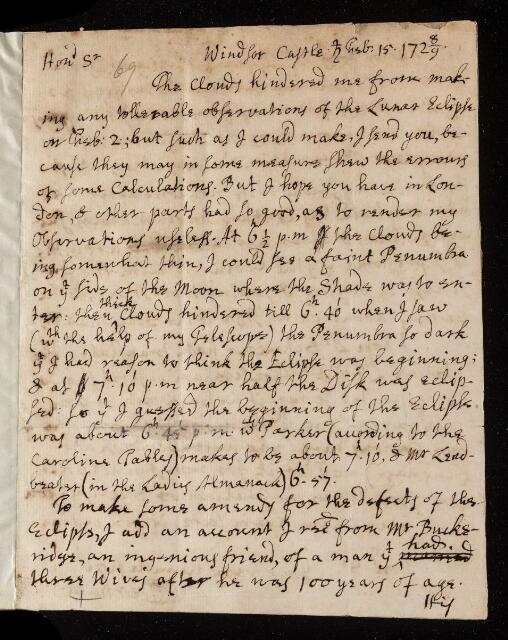 Hon.d S.r 69 Windsor Castle Feb: 15. 172 8/9
The Clouds hindered me from mak-
ing any tollerable observations of the Lunar Eclipse
on Feb: 2; but such as I could make, I send you, be-
cause they may in some measure shew the errours
of some Calculations. But I hope you have in Lon-
don, & other parts had so good, as to render my
Observations useless. At 6h 1/2 p.m the Clouds be-
ing somewhat thin, I could see a faint Penumbra
on ye side of the Moon where the Shade was to en-
ter: then thick Clouds hindered till 6h. 40' when I saw
(wth the help of my Telescope) the Penumbra so dark
yt I had reason to think the Eclipse was beginning;
& at 7h. 10' p.m near half the Disk was eclip-
sed: so yt I guessed the beginning of the Eclipse
was about 6h. 45' p.m. wch Parker (according to the
Caroline Tables) makes to be about 7h. 10', & Mr Lead-
beater (in the Ladies Almanack) 6h. 57'.
To make some amends for the defects of the
Eclipse, I add an account I recd from Mr Bucke-
ridge, an ingenious friend, of a man yt had
three Wives after he was 100 years of age.
His